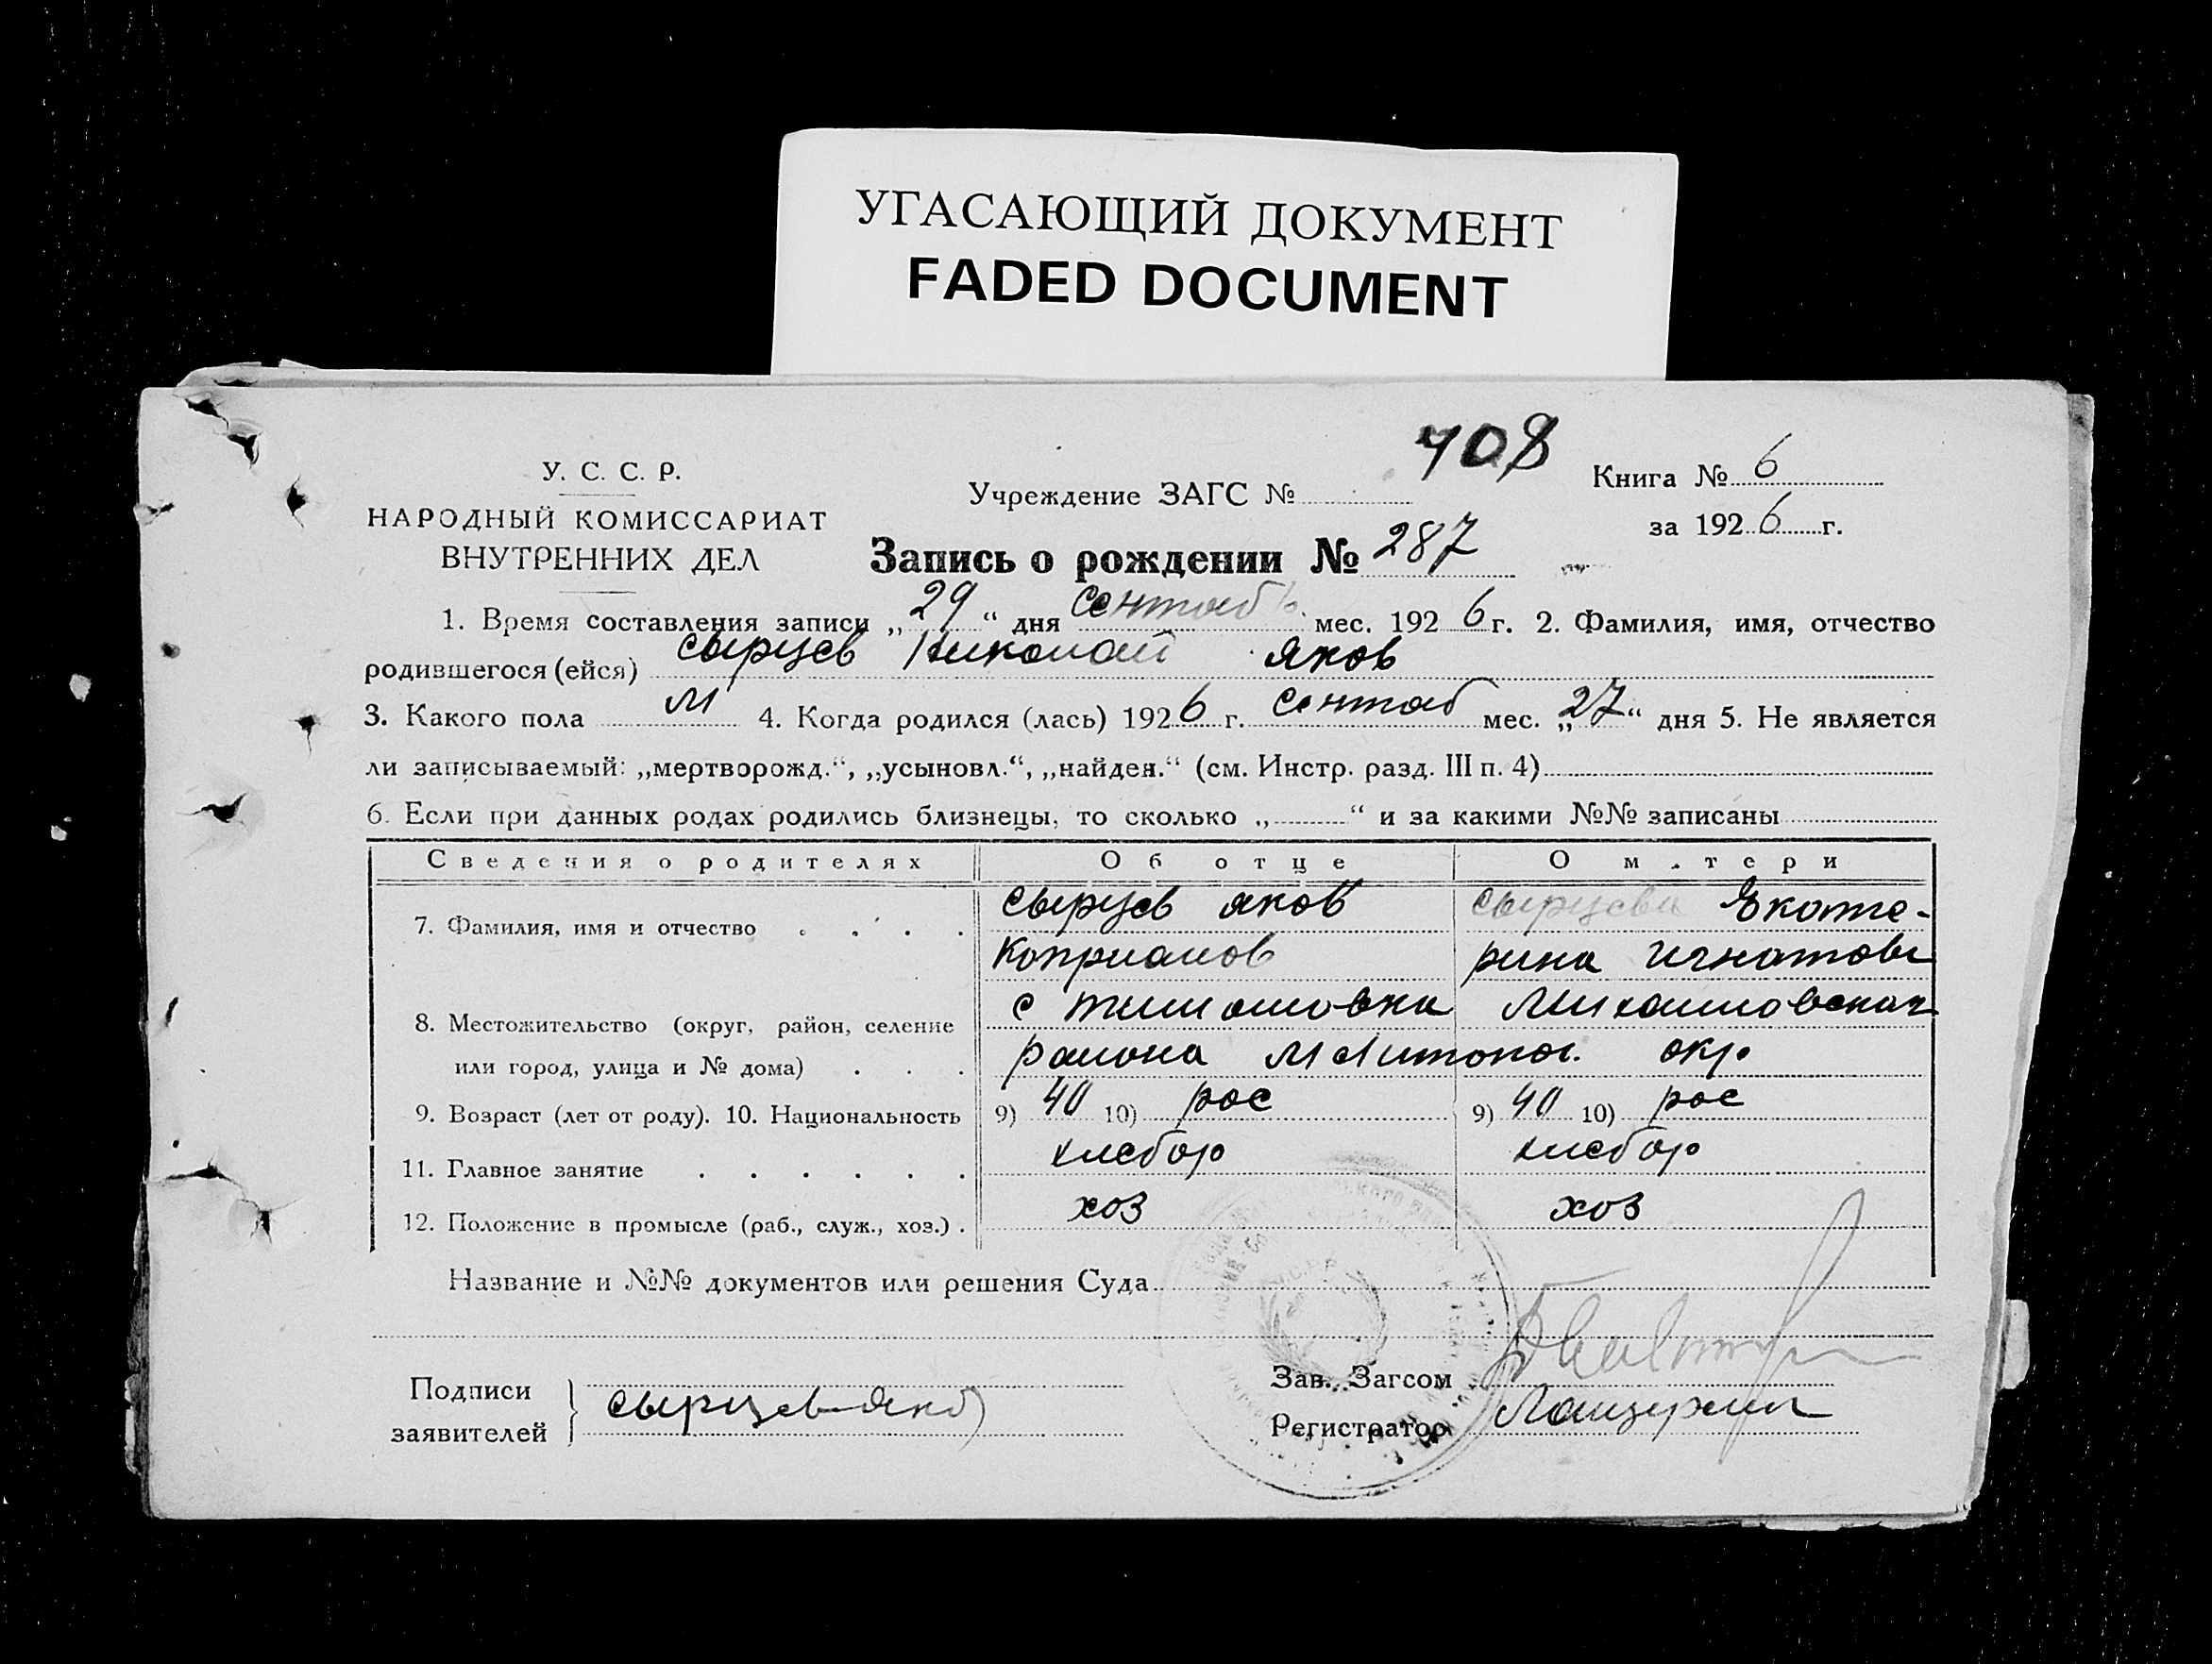 УГАСАЮЩИЙ ДОКУМЕНТ
FADED DOCUMENT
У. С. С. Р.
НАРОДНЫЙ КОМИССАРИАТ
ВНУТРЕННИХ ДЕЛ
Учреждение ЗАГС № 708
Книга № 6
за 1926 г.
Запись о рождении № 287
1. Время составления записи „29“ дня сентяб мес. 1926 г. 2. Фамилия, имя, отчество
родившегося (ейся) сырцев Николай яков
3. Какого пола м 4. Когда родился (лась) 1926 г. сентяб мес. „27“ дня 5. Не является
ли записываемый: „мертворожд.“, „усыновл.“, „найден.“ (см. Инстр. разд. III п. 4)
6. Если при данных родах родились близнецы, то сколько „ “ и за какими №№ записаны
Сведения о родителях Об отце О м.тери
7. Фамилия, имя и отчество сырцев яков сырцева Екате-
Коприанов рина игнатовн
8. Местожительство (округ, район, селение с тимошовка Михаиловская
или город, улица и № дома) раиона Мелитопол. окр.
9. Возраст (лет от роду). 10. Национальность 9) 40 10) рос 9) 40 10) рос
11. Главное занятие хлебор хлебор
12. Положение в промысле (раб., служ., хоз.) хоз хоз
Название и №№ документов или решения Суда
Подписи
заявителей сырцев яков
Зав. Загсом
Регистратор